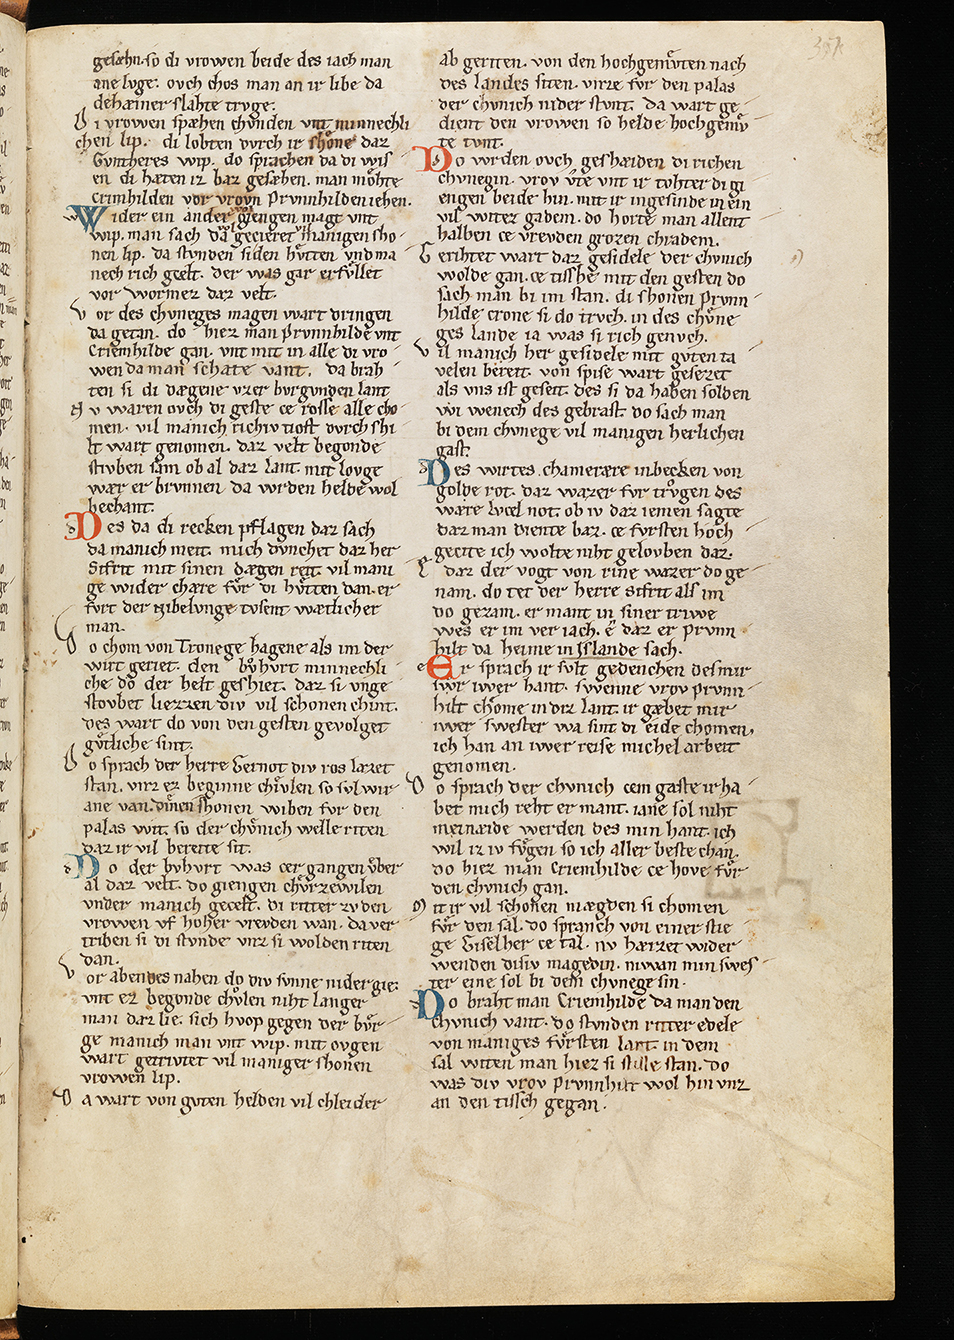 gesæhn. so di vrowen beide des iach man
ane luge. ovch chos man an ir libe da
dehæiner slahte truge.
Di vrowen spæhen chvnden vnt minnechli
chen lip. di lobten dvrch ir shone daz
Gvntheres wip. do sprachen da di wis
en di hæten iz baz gesæhen. man mohte
Crimhilden vor vrovn Prvnnhilden iehen.
Wider ein ander giengen magt vnt
wip. man sach da gecieret manigen sho
nen lip. da stvnden siden hvtten vnd ma
nech rich gcelt. der was gar erfvllet
vor Wormez daz velt.
Vor des chvneges magen wart dringen
da getan. do hiez man Prvnnhilde vnt
Criemhilde gan. vnt mit in alle di vro
wen da man schate vant. da brah
ten si di dægene vzer bvrgvnden lant
Nv waren ovch di geste ce rosse alle cho
men. vil manich richiv tiost dvrch shi
lt wart genomen. daz velt begonde
stivben sam ob al daz lant. mit lovge
wær er brvnnen da wrden helde wol
bechant.
Des da di recken pflagen daz sach
da manich meit. mich dvnchet daz her
Sifrit mit sinen dægen reit. vil mani
ge wider chære fvr di hvtten dan. er
fvrt der Nibelunge tvsent wætlicher
man.
Do chom von Tronege hagene als im der
wirt geriet. den bvhvrt minnechli
che do der helt geshiet. daz si vnge
stovbet liezzen div vil schonen chint.
des wart do von den gesten gevolget
gvtliche sint.
Do sprach der herre Gernot div ros lazet
stan. vnz ez beginne chvlen so svl wir
ane van. dinen shonen wiben fvr den
palas wit. so der chvnich welle riten
daz ir vil bereite sit.
Do der bvhvrt was cergangen vber
al daz velt. do giengen chvrzewilen
vnder manich gecelt. di ritter zv den
vrowen vf hoher vrevden wan. da ver
triben si di stvnde vnz si wolden riten
dan.
Vor abendes nahen do div svnne nider gie.
vnt ez begonde chvlen niht langer
man daz lie. sich hvop gegen der bvr
ge manich man vnt wip. mit ovgen
wart getrivtet vil maniger shonen
vrowen lip.
Da wart von gvten helden vil chleider
ab geriten. von den hochgemvten nach
des landes siten. vnze fvr den palas
der chvnich nider stvnt. da wart ge
dient den vrowen so helde hochgemv
te tvnt.
Do wrden ovch geshæiden di richen
chvnegin. vrov vte vnt ir tohter di gi
engen beide hin. mit ir ingesinde in ein
vil witez gadem. do horte man allent
halben ce vrevden grozen chradem.
Gerihtet wart daz gesidele der chvnich
wolde gan. ce tisshe mit den gesten do
sach man bi im stan. di shonen Prvnn
hilde crone si do trvch. in des chvne
ges lande ia was si rich genvch.
Vil manich her gesidele mit gvten ta
velen bereit. von spise wart gesezet
als vns ist geseit. des si da haben solden
wi wenech des gebrast. do sach man
bi dem chvnege vil manigen herlichen
gast.
Des wirtes chamerære in becken von
golde rot. daz wazer fvr trvgen des
wære lvcel not. ob iv daz iemen sagte
daz man diente baz. ce fvrsten hoch
gecite ich wolte niht gelovben daz.
E daz der vogt von rine wazer do ge
nam. do tet der herre Sifrit als im
do gezam. er mant in siner triwe
wes er im ver iach. e daz er Prvnn
hilt da heime in Islande sach.
Er sprach ir svlt gedenchen des mir
swr iwer hant. swenne vrov Prvnn
hilt chome in diz lant. ir gæbet mir
iwer swester wa sint di eide chomen,
ich han an iwer reise michel arbeit
genomen.
Do sprach der chvnich cem gaste ir ha
bet mich reht er mant. iane sol niht
meinæide werden des min hant. ich
wil iz iv fvgen so ich aller beste chan.
do hiez man Criemhilde ce hove fvr
den chvnich gan.
Mit ir vil schonen mægden si chomen
fvr den sal. do spranch von einer stie
ge Giselher ce tal. nv hæizet wider
wenden disiv magedin. niwan min swes
ter eine sol bi dem chvnege sin.
Do braht man Criemhilde da man den
chvnich vant. do stvnden ritter edele
von maniges fvrsten lant. in dem
sal witen man hiez si stille stan. do
was div vrov Prvnnhilt wol hin vnz
an den tissch gegan.